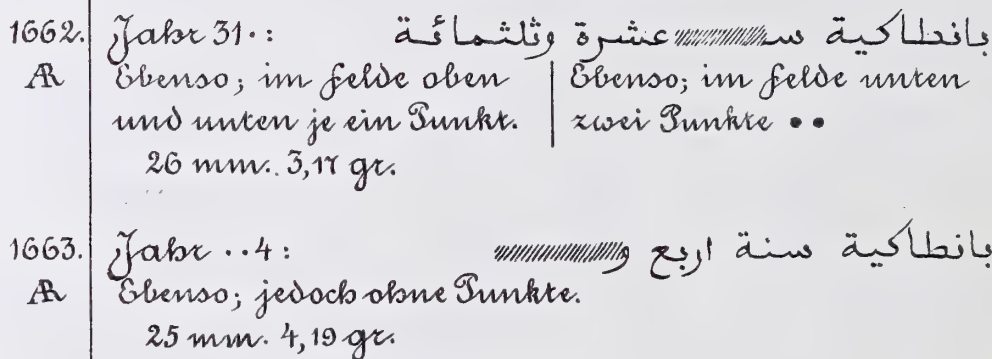 1662. Jahr 31·: بانطاكية س عشرة وثلثمائة
AR Ebenso; im Felde oben | Ebenso; im Felde unten
und unten je ein Punkt. | zwei Punkte ••
26 mm. 3,17 gr.
1663. Jahr ··4: بانطاكية سنة اربع و
AR Ebenso; jedoch ohne Punkte.
25 mm. 4,19 gr.